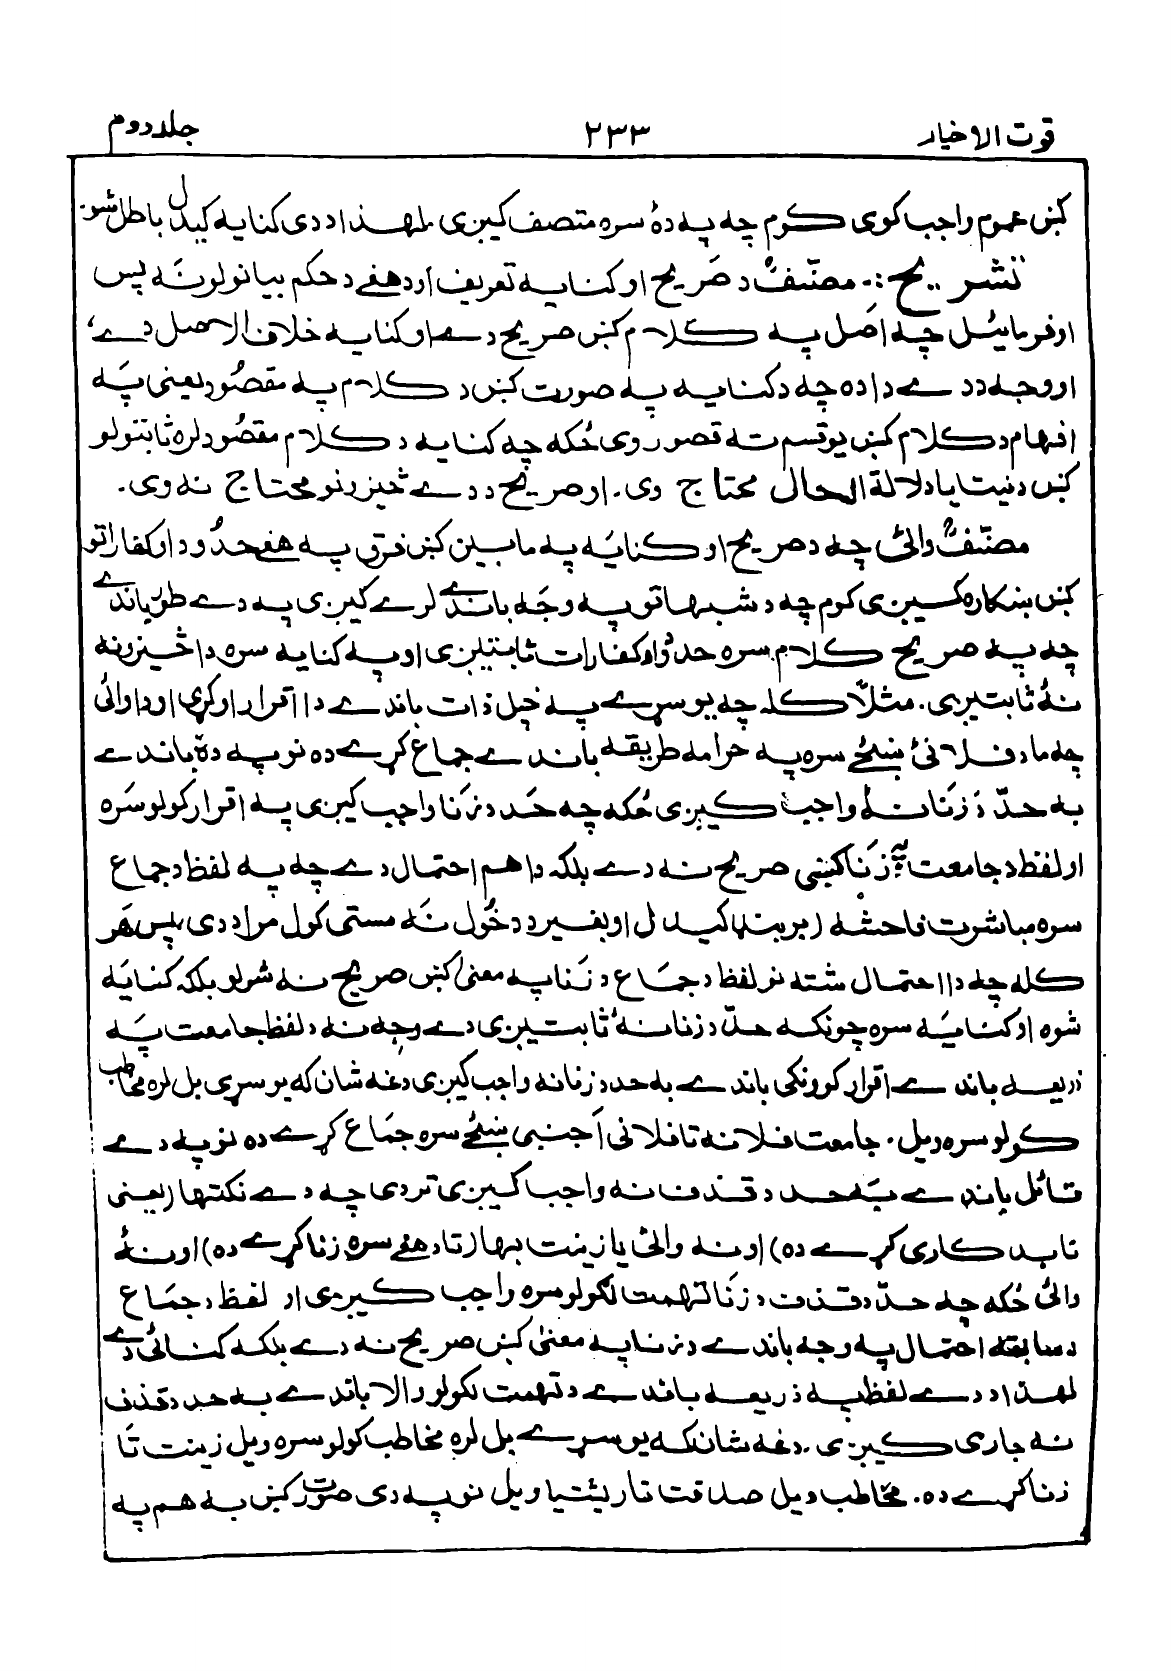 قوت الاخیار ۲۳۳ جلد دوم
کښ عموم واجب کوی کوم چه په دهٔ سره متصف کیږی. لهٰذا د دی کنایه کیدل باطل شو.
تشریح :. مصنّفؒ د صریح او کنایه تعریف اَو د هغے د حکم بیانولو نَه پس
اوفرمائیل چه اصل په کلام کښ صریح دے او کنایه خلاف الاصل دے،
اَو وجه د دے دا ده چه د کنایه په صورت کښ د کلام په مقصُود یعنی په
افهام د کلام کښ یو قسم ته قصور وی ځکه چه کنایه د کلام مقصُود لره ثابتولو
کښ د نیت یا دلالة الحال محتاج وی. اَو صریح د دے څیزونو محتاج نه وی.
مصنّفؒ وائی چه د صریح او کنایَه په مابین کښ فرق په هغے حدُود او کفاراتو
کښ ښکاره کیږی کوم چه د شبهاتو په وجه باندے لرے کیږی په دے طور باندے
چه په صریح کلام سره حدُود او کفارات ثابتیږی او په کنایه سره دا څیزونه
نهٔ ثابتیږی. مثلاً کله چه یو سړے په خپل ذات باندے دا اقرار اوکړی او دا وائی
چه ما د فلانئ ښځے سره په حرامه طریقه باندے جماع کړے ده نو په دهٔ باندے
به حدّ دَ زنا نهٔ واجب کیږی ځکه چه حَد د زنا واجب کیږی په اقرار کولو سَره
او لفظ د جامعت په زنا کښی صریح نه دے بلکه دا هم احتمال دے چه په لفظ د جماع
سره مباشرت فاحشه (بربنډ کیدل او بغیر د دخُول نَه مستی کول) مراد دی، پس هَر
کله چه دا احتمال شته نو لفظ د جمَاع د زنا په معنیٰ کښ صریح نه شولو بلکه کنایَه
شوه او کنایَه سره چونکه حدّ د زنا نهٔ ثابتیږی دے وجه نه د لفظ جامعت په
ذریعه باندے اقرار کوونکی باندے به حد د زنا نه واجب کیږی دغه شان که یو سړی بل لره مخاطب
کولو سره ویل. جامعت فلانة تا فلانی اَجنبی ښځے سره جماع کړے ده نو په دے
قائل باندے به حد د قذف نه واجب کیږی تر دی چه دے نکتها (یعنی
تا بدکاری کړے ده) اونه وائی یا زینت بها (تا د هغے سره زنا کړے ده) اونهٔ
وائی ځکه چه حدّ د قذف د زنا تهمت لگولو سره واجب کیږی او لفظ د جمَاع
د سابقه احتمال په وجه باندے د زنا په معنیٰ کښ صریح نه دے بلکه کنائی دے
لهٰذا د دے لفظ په ذریعه باندے د تهمت لگولو والا باندے به حد د قذف
نه جاری کیږی. دغه شان که یو سړے بل لره مخاطب کولو سره ویل زینت تا
زنا کړے ده. مخاطب ویل صدقت تا ریښتیا ویل نو په دی صورت کښ به هم په